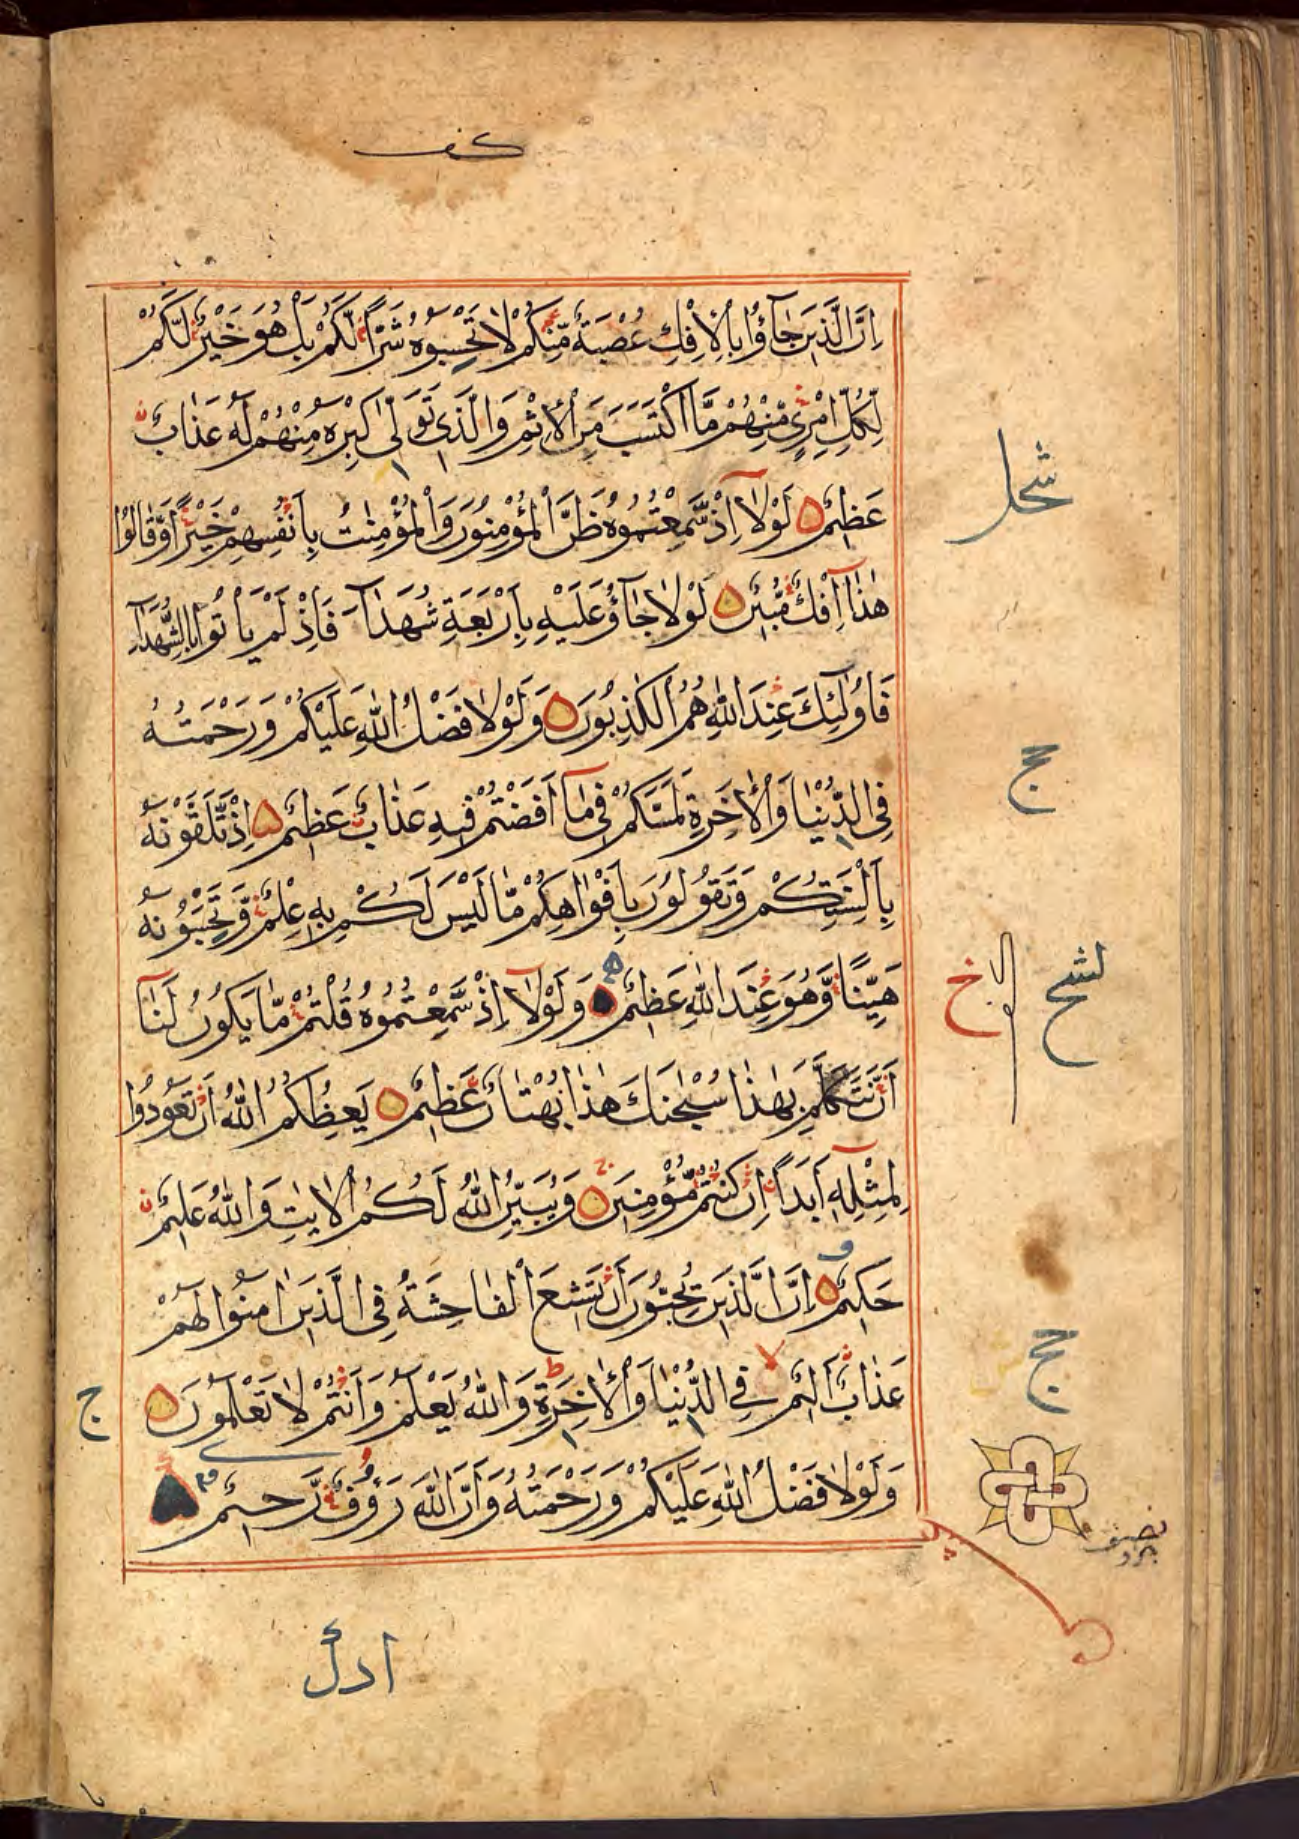 كف
اِنَّ الَّذٖينَ جَآؤُا بِالْاِفْكِ عُصْبَةٌ مِّنْكُمْ لَا تَحْسِبُوهُ شَرًّا لَّكُمْ بَلْ هُوَ خَيْرٌ لَّكُمْ
لِكُلِّ امْرِئٍ مِّنْهُمْ مَّا اكْتَسَبَ مِنَ الْاِثْمِ وَالَّذٖى تَوَلّٰى كِبْرَهُ مِنْهُمْ لَهُ عَذَابٌ
عَظٖيمٌ لَوْلَآ اِذْ سَّمِعْتُمُوهُ ظَنَّ الْمُؤْمِنُونَ وَالْمُؤْمِنٰتُ بِاَنْفُسِهِمْ خَيْرًا وَّقَالُوْا
هٰذَآ اِفْكٌ مُّبٖينٌ لَوْلَا جَآؤُ عَلَيْهِ بِاَرْبَعَةِ شُهَدَآءَ فَاِذْ لَمْ يَاْتُوا بِالشُّهَدَآءِ
فَاُولٰٓئِكَ عِنْدَ اللّٰهِ هُمُ الْكٰذِبُونَ وَلَوْلَا فَضْلُ اللّٰهِ عَلَيْكُمْ وَرَحْمَتُهُ
فِى الدُّنْيَا وَالْاٰخِرَةِ لَمَسَّكُمْ فٖى مَآ اَفَضْتُمْ فٖيهِ عَذَابٌ عَظٖيمٌ اِذْ تَّلَقَّوْنَهُ
بِاَلْسِنَتِكُمْ وَتَقُولُونَ بِاَفْوَاهِكُمْ مَّا لَيْسَ لَكُمْ بِهٖ عِلْمٌ وَّتَحْسِبُونَهُ
هَيِّنًا وَّهُوَ عِنْدَ اللّٰهِ عَظٖيمٌ وَلَوْلَآ اِذْ سَّمِعْتُمُوهُ قُلْتُمْ مَّا يَكُونُ لَنَآ
اَنْ نَّتَكَلَّمَ بِهٰذَا سُبْحٰنَكَ هٰذَا بُهْتَانٌ عَظٖيمٌ يَعِظُكُمُ اللّٰهُ اَنْ تَعُودُوا
لِمِثْلِهٖٓ اَبَدًا اِنْ كُنْتُمْ مُّؤْمِنٖينَ وَيُبَيِّنُ اللّٰهُ لَكُمُ الْاٰيٰتِ وَاللّٰهُ عَلٖيمٌ
حَكٖيمٌ اِنَّ الَّذٖينَ يُحِبُّونَ اَنْ تَشٖيعَ الْفَاحِشَةُ فِى الَّذٖينَ اٰمَنُوا لَهُمْ
عَذَابٌ اَلٖيمٌ فِى الدُّنْيَا وَالْاٰخِرَةِ وَاللّٰهُ يَعْلَمُ وَاَنْتُمْ لَا تَعْلَمُونَ
وَلَوْلَا فَضْلُ اللّٰهِ عَلَيْكُمْ وَرَحْمَتُهُ وَاَنَّ اللّٰهَ رَؤُفٌ رَّحٖيمٌ
ج